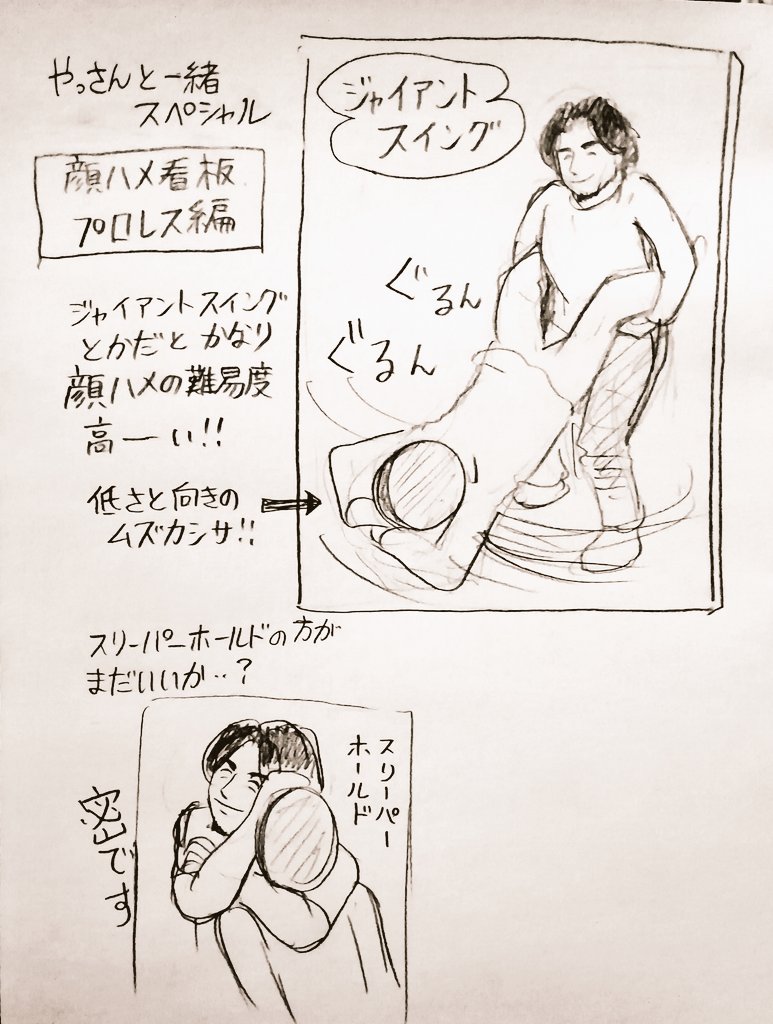 やっさんと一緒
スペシャル
顔ハメ看板
プロレス編
ジャイアントスイング
とかだと かなり
顔ハメの難易度
高ーい!!
低さと向きの
ムズカシサ!!
ジャイアント
スイング
ぐるん
ぐるん
スリーパーホールドの方が
まだいいか‥?
スリーパー
ホールド
密です